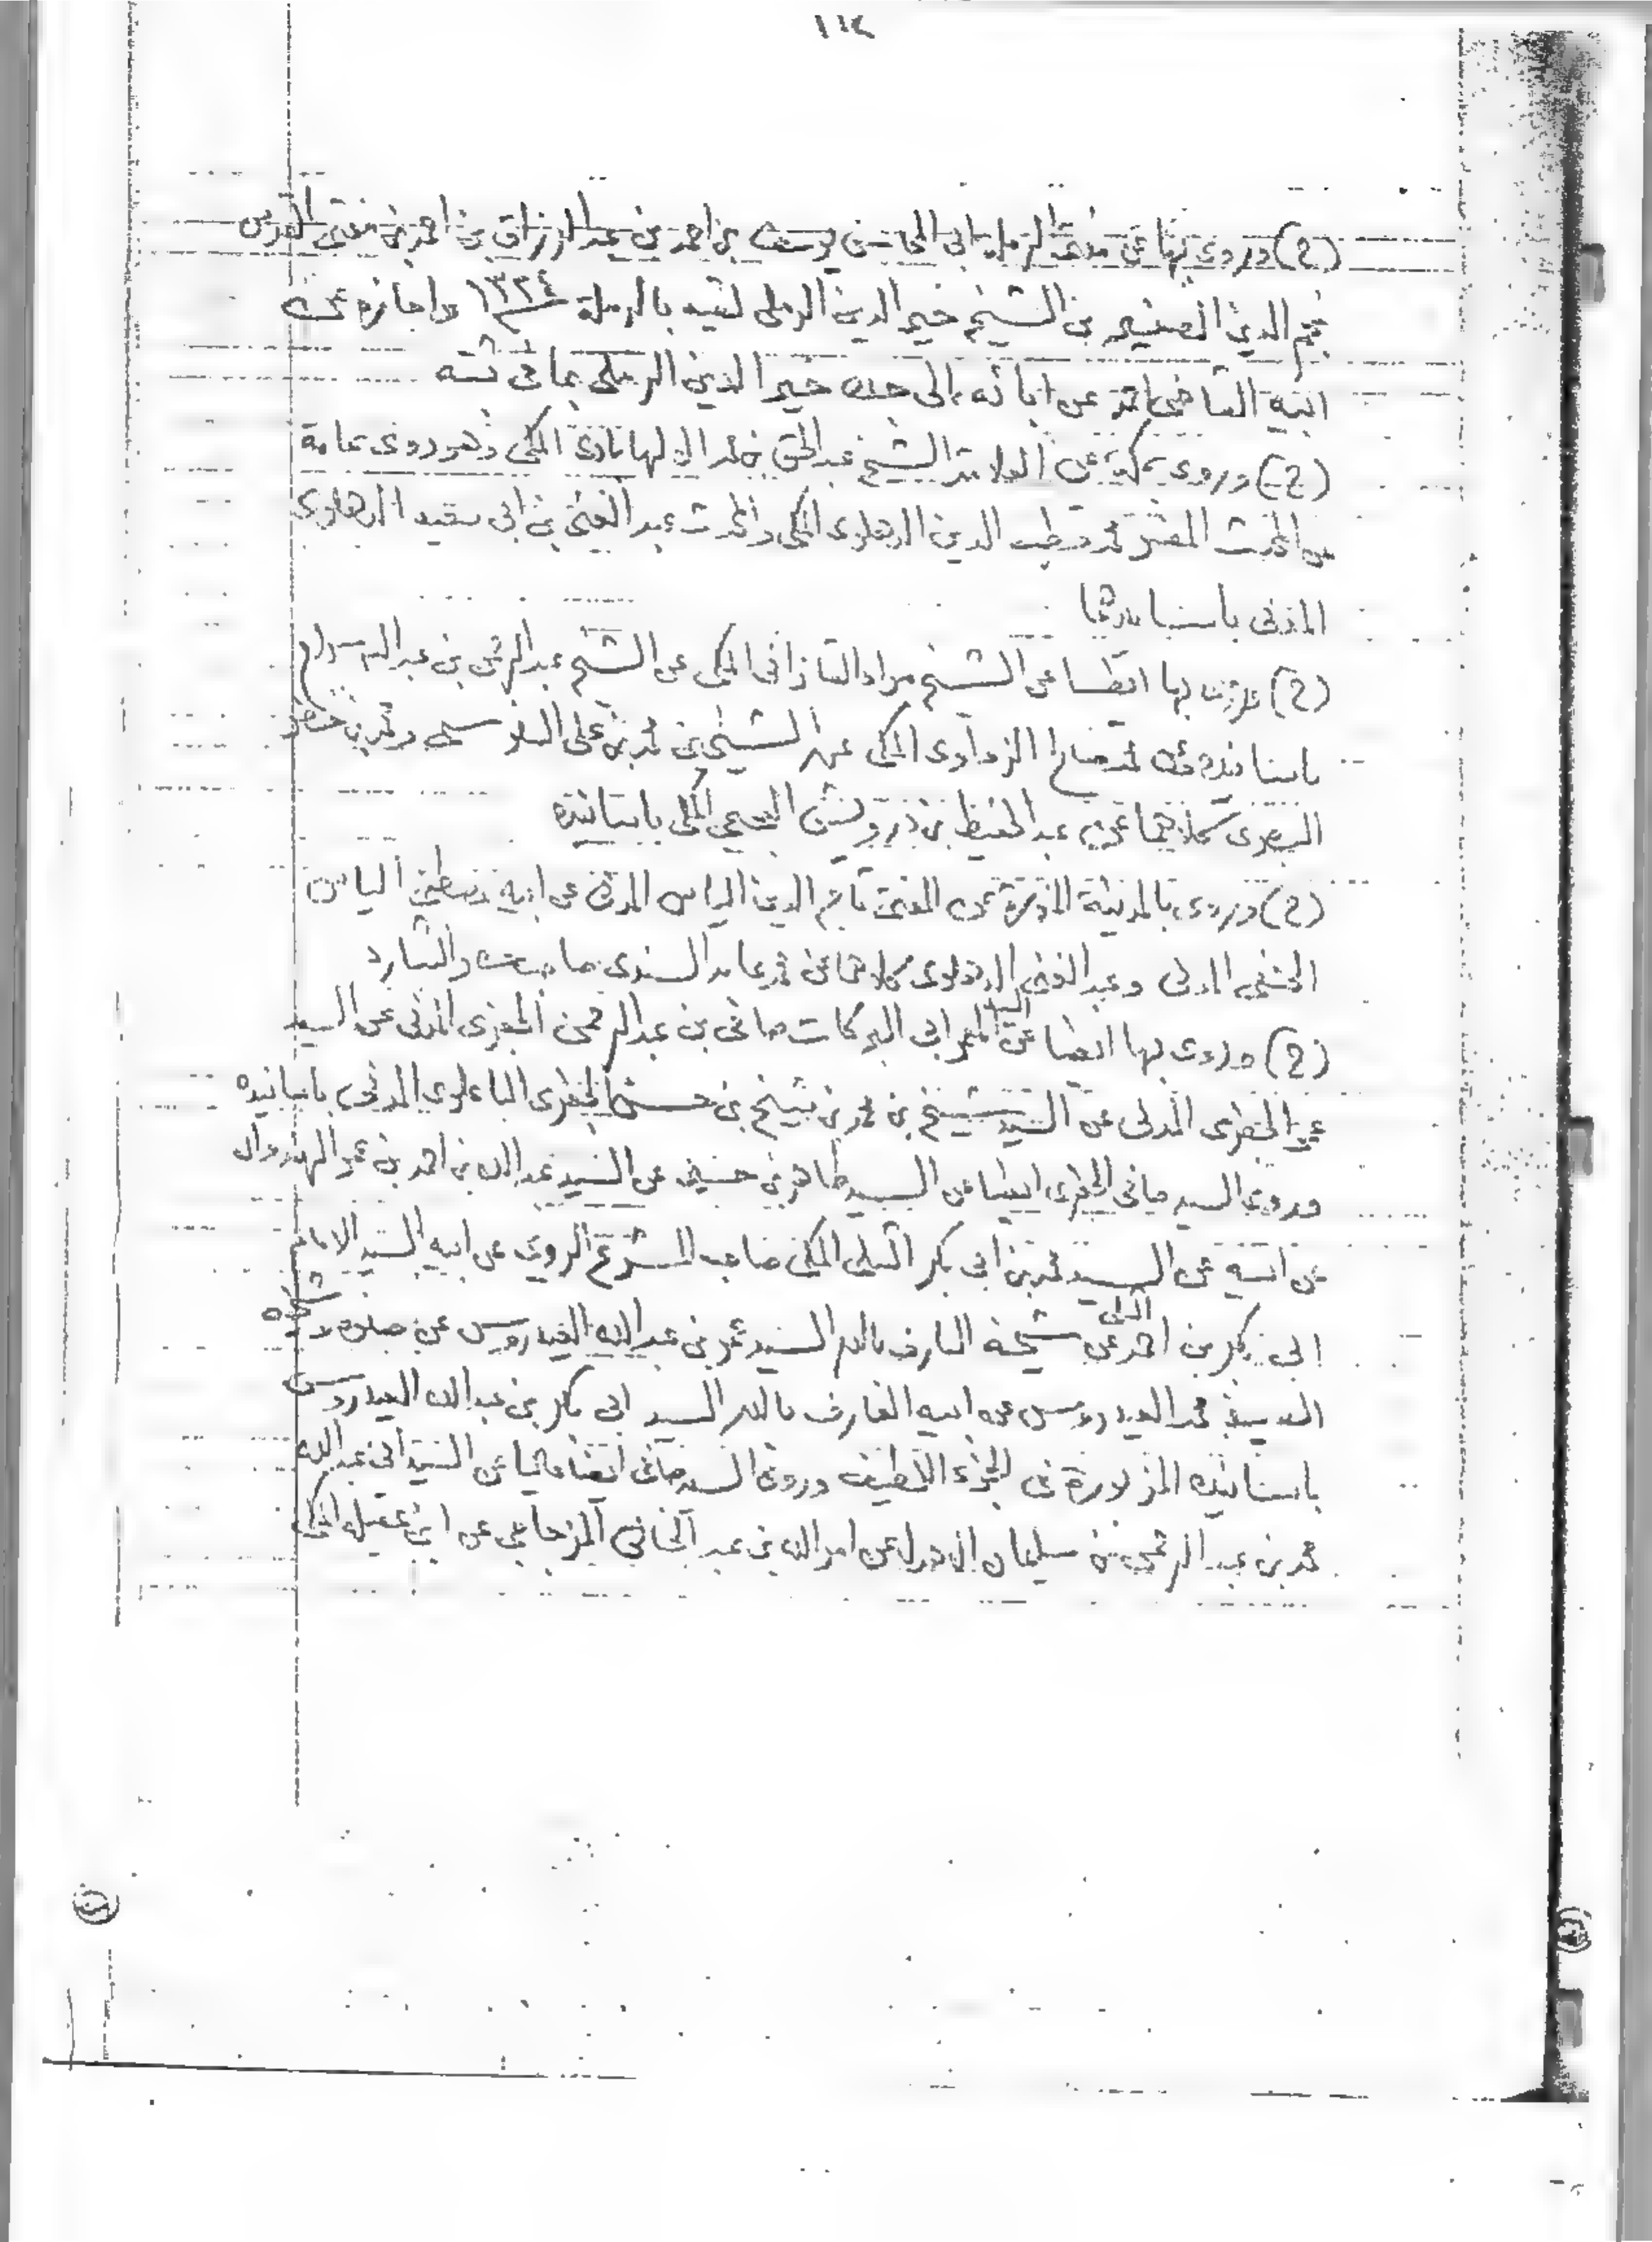 (ح) وروى بها عن مفتي الرملة ابي المحاسن يوسف بن احمد بن عبد الرزاق بن احمد بن مفتي القدس
نجم الدين الصغير بن الشيخ خير الدين الرملي لقيه بالرملة ١٣٢٤ واجازه عن
ابيه القاضي احمد عن آبائه الى جده خير الدين الرملي بما في ثبته
(ح) وروى بمكة عن العلامة الشيخ عبد الحق بن محمد الالهابادي المكي وهو روى عامة
عن المحدث المفسر محمد قطب الدين الدهلوي المكي والمحدث عبد الغني بن ابي سعيد الدهلوي
المدني باسنادهما
(ح) بها ايضا عن الشيخ مراد القازاني المكي عن الشيخ عبد الرحمن بن عبد الله سراج
باسانيده محمد صالح الزواوي المكي عن الشيخين محمد بن علي السنوسي ومحمد بن خضر
البصري كلاهما عن عبد الحفيظ بن درويش العجيمي المكي باسانيده
(ح) وروى بالمدينة المنورة عن المفتي تاج الدين الياس المدني عن ابيه مصطفى الياس
الحنفي المدني وعبد الغني الدهلوي كلاهما عن محمد عابد السندي صاحب والشارد
(ح) وروى بها ايضا عن السيد المعمر ابي البركات صافي بن عبد الرحمن الجفري المدني عن السيد
عمر الجفري المدني عن السيد شيخ بن محمد بن شيخ بن حسن الجفري الباعلوي المدني باسانيده
وروى السيد صافي الجفري ايضا عن السيد طاهر بن حسين عن السيد عبد الله بن احمد بن عمر الهندوان
عن ابيه عن السيد محمد بن ابي بكر الشلي المكي صاحب المشرع الروي عن ابيه السيد الامام
ابي بكر بن احمد الشلي عن شيخه العارف بالله السيد عمر بن عبد الله العيدروس عن صنوه وشيخه
السيد محمد العيدروس عن ابيه العارف بالله السيد ابي بكر بن عبد الله العيدروس
باسانيده المزبورة في الجزء اللطيف وروى السيد صافي ايضا عاليا عن السيد ابي عبد الله
محمد بن عبد الرحمن بن سليمان الاهدل عن امر الله بن عبد الخالق المزجاجي عن ابن عقيلة المكي